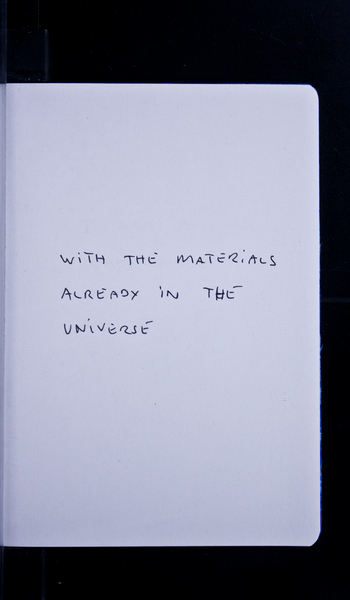 WiTH THE MATERiALS
ALREADY iN THE
UNiVERSE